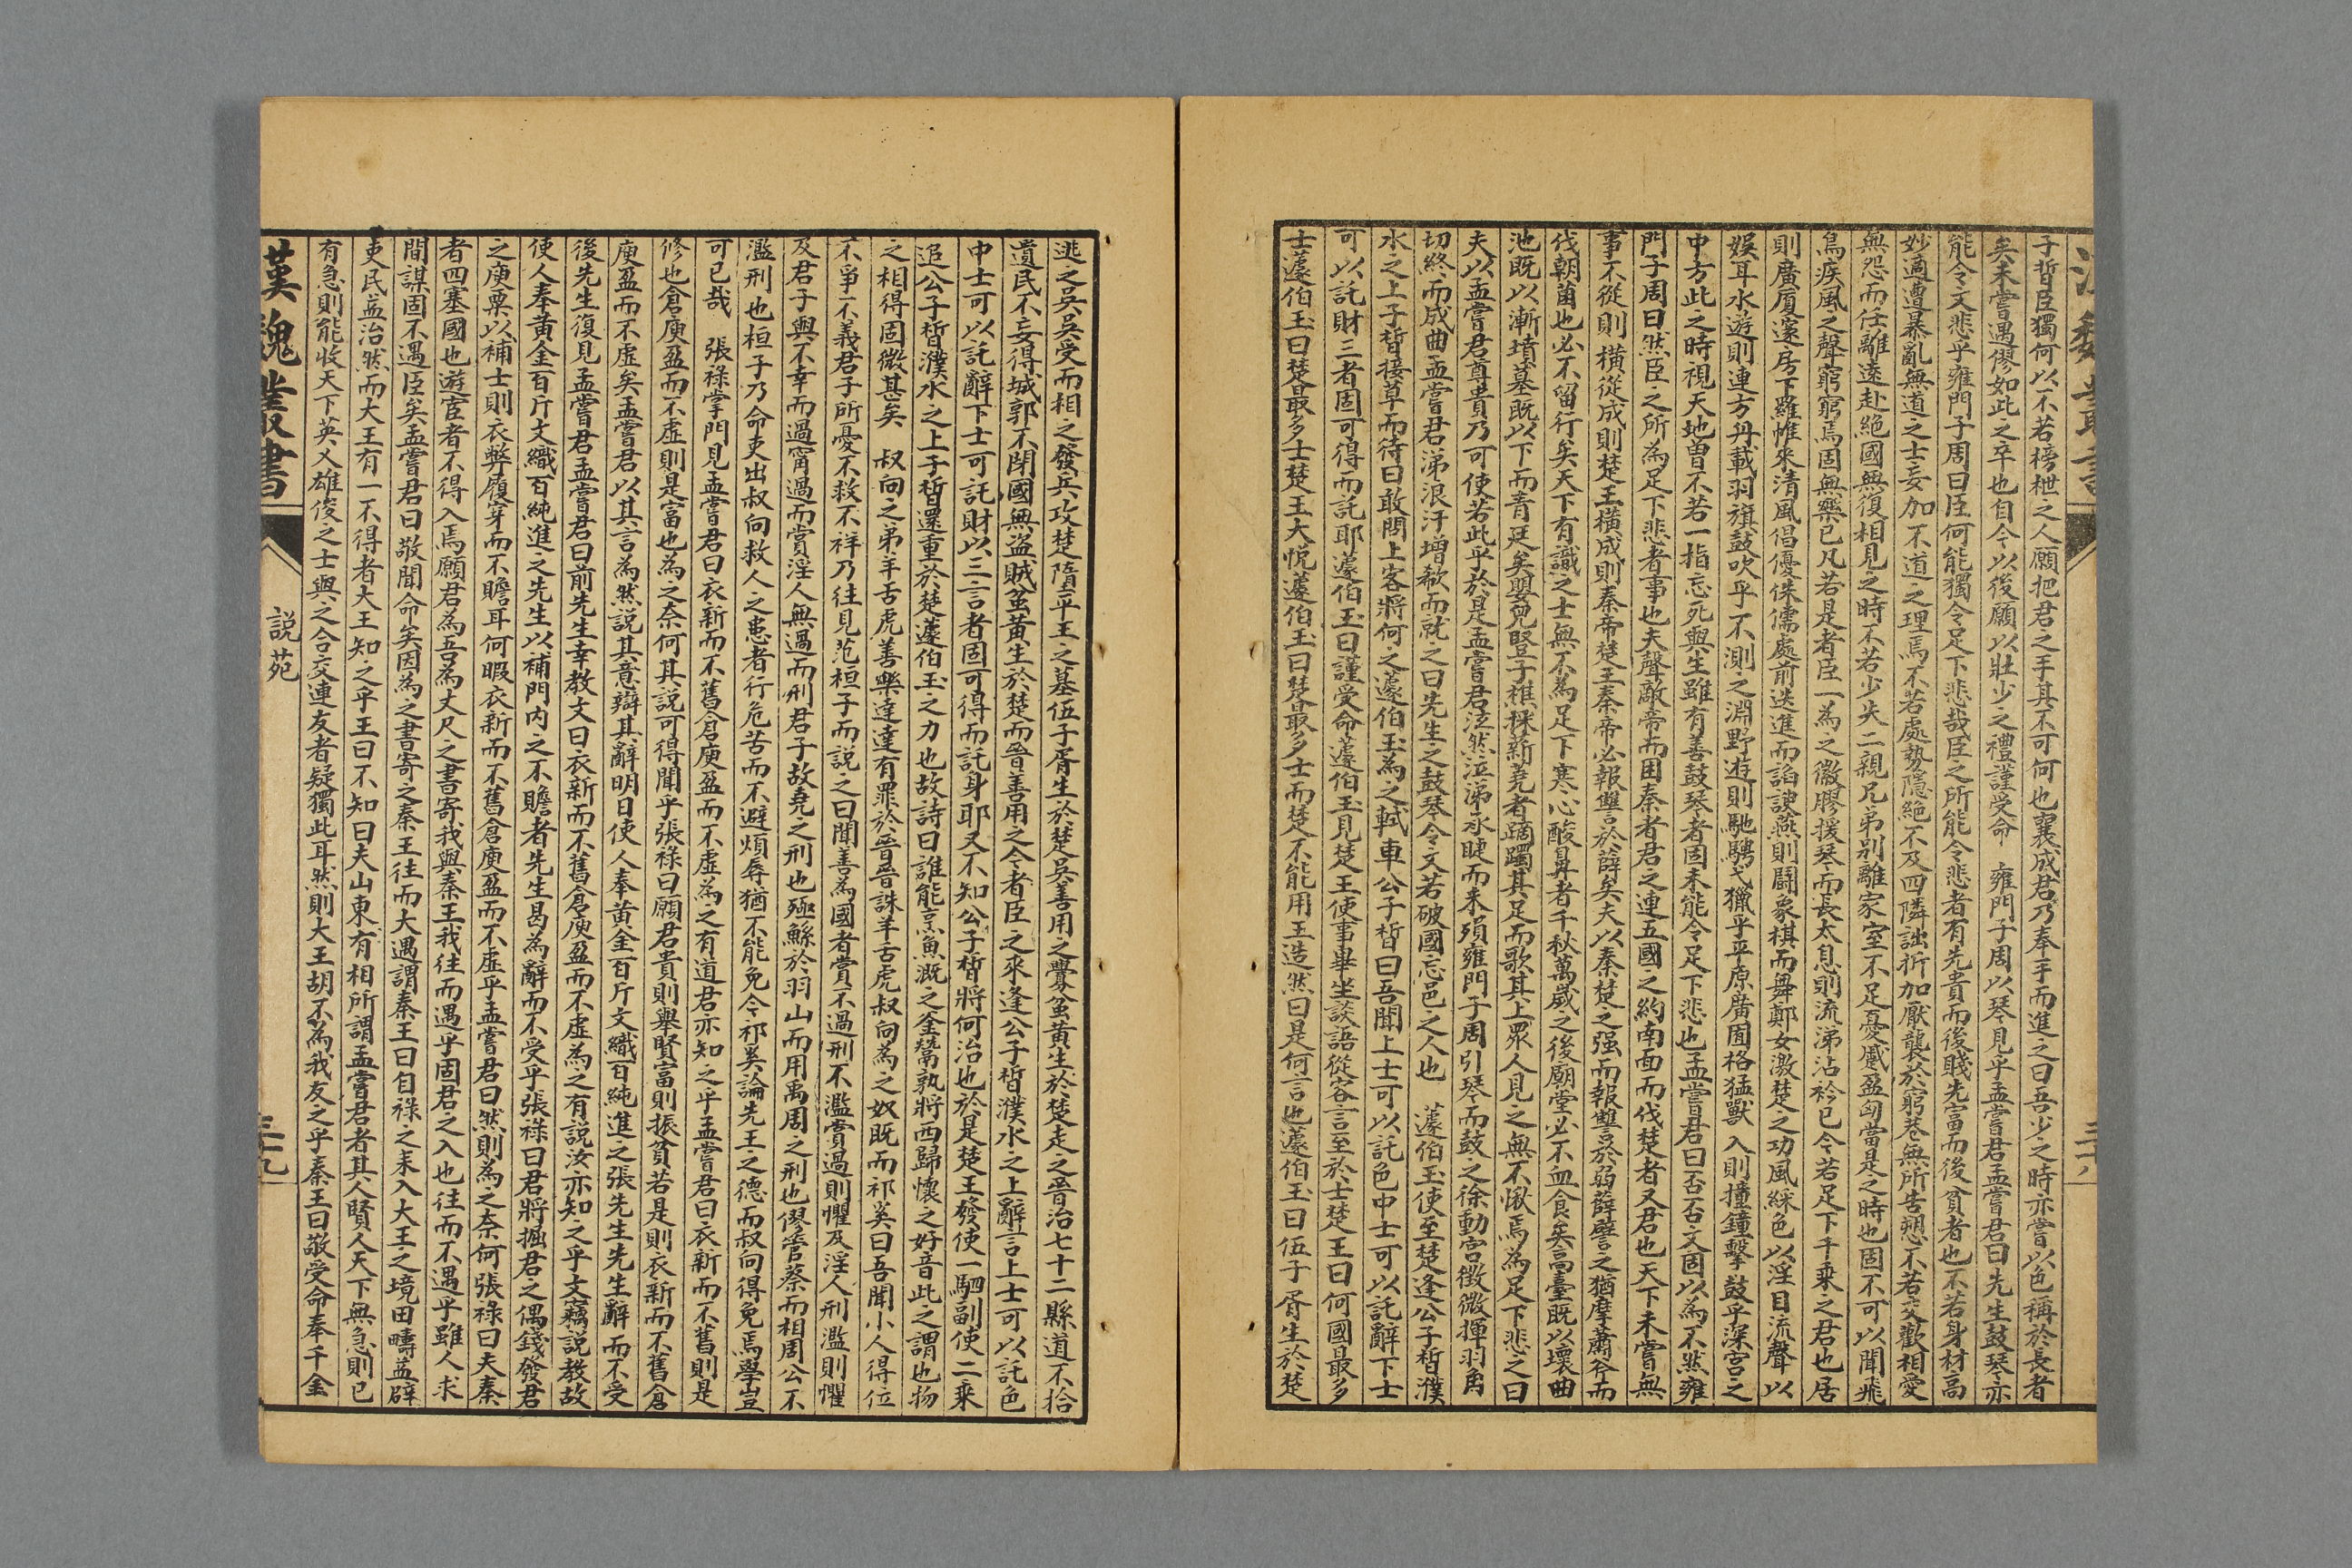 子晳臣獨何以不若榜枻之人願把君之手其不可何也襄成君乃奉手而進之曰吾少之時亦嘗以色稱於長者
矣未嘗遇僇如此之卒也自今以後願以壯少之禮謹受命　雍門子周以琴見乎孟嘗君孟嘗君曰先生鼓琴亦
能令文悲乎雍門子周曰臣何能獨令足下悲哉臣之所能令悲者有先貴而後賤先富而後貧者也不若身材高
妙適遭暴亂無道之士妄加不道之理焉不若處勢隱絕不及四隣詘折加厭襲於窮巷無所告愬不若交歡相愛
無怨而任離遠赴絕國無復相見之時不若少失二親兄弟別離家室不足憂慼盈匈當是之時也固不可以聞飛
鳥疾風之聲窮窮焉固無樂已凡若是者臣一為之徽膠援琴而長太息則流涕沾衿已令若足下千乘之君也居
則廣廈邃房下羅帷來清風倡優侏儒處前迭進而諂諛燕則鬭象棋而舞鄭女激楚之功風綵色以淫目流聲以
娛耳水遊則連方舟載羽旗鼓吹乎不測之淵野遊則馳騁弋獵乎平原廣囿格猛獸入則撞鐘擊鼓乎深宮之
中方此之時視天地曾不若一指忘死與生雖有善鼓琴者固未能令足下悲也孟嘗君曰否否文固以為不然雍
門子周曰然臣之所為足下悲者事也夫聲敵帝而困秦者君之連五國之約南面而伐楚者又君也天下未嘗無
事不從則橫從成則楚王橫成則秦帝楚王秦帝必報讐於薛矣夫以秦楚之强而報讐於弱薛譬之猶摩蕭斧而
伐朝菌也必不留行矣天下有識之士無不為足下寒心酸鼻者千秋萬歲之後廟堂必不血食矣高臺既以壞曲
池既以漸墳墓既以下而青廷矣嬰兒豎子樵採薪蕘者蹢躅其足而歌其上眾人見之無不愀焉為足下悲之曰
夫以孟嘗君尊貴乃可使若此乎於是孟嘗君泫然泣涕承睫而未殞雍門子周引琴而鼓之徐動宮徵微揮羽角
切終而成曲孟嘗君涕浪汗增欷而就之曰先生之鼓琴令文若破國忘邑之人也　蘧伯玉使至楚逢公子晳濮
水之上子晳接草而待曰敢問上客將何之蘧伯玉為之軾車公子晳曰吾聞上士可以託色中士可以託辭下士
可以託財三者固可得而託耶蘧伯玉曰謹受命蘧伯玉見楚王使事畢坐談語從容言至於士楚王曰何國最多
士蘧伯玉曰楚最多士楚王大悅蘧伯玉曰楚最多士而楚不能用王造然曰是何言也蘧伯玉曰伍子胥生於楚
逃之吳吳受而相之發兵攻楚隋平王之墓伍子胥生於楚吳善用之釁蚠黃生於楚走之晉治七十二縣道不拾
遺民不妄得城郭不閉國無盜賊蚠黃生於楚而晉善用之今者臣之來逢公子晳濮水之上辭言上士可以託色
中士可以託辭下士可託財以三言者固可得而託身耶又不知公子晳將何治也於是楚王發使一駟副使二乘
追公子晳濮水之上子晳還重於楚蘧伯玉之力也故詩曰誰能烹魚溉之釜鬵孰將西歸懷之好音此之謂也物
之相得固微甚矣　叔向之弟羊舌虎善樂達達有罪於晉晉誅羊舌虎叔向為之奴既而祁奚曰吾聞小人得位
不爭不義君子所憂不救不祥乃往見范桓子而說之曰聞善為國者賞不過刑不濫賞過則懼及淫人刑濫則懼
及君子與不幸而過甯過而賞淫人無過而刑君子故堯之刑也殛鯀於羽山而用禹周之刑也僇管蔡而相周公不
濫刑也桓子乃命吏出叔向救人之患者行危苦而不避煩辱猶不能免今祁奚論先王之德而叔向得免焉學豈
可已哉　張祿掌門見孟嘗君曰衣新而不舊倉庾盈而不虛為之有道君亦知之乎孟嘗君曰衣新而不舊則是
修也倉庾盈而不虛則是富也為之奈何其說可得聞乎張祿曰願君貴則舉賢富則振貧若是則衣新而不舊倉
庾盈而不虛矣孟嘗君以其言為然說其意辯其辭明日使人奉黃金百斤文織百純進之張先生先生辭而不受
後先生復見孟嘗君孟嘗君曰前先生幸教文曰衣新而不舊倉庾盈而不虛為之有說汝亦知之乎文竊說教故
使人奉黃金百斤文織百純進之先生以補門內之不贍者先生曷為辭而不受乎張祿曰君將掘君之偶錢發君
之庾粟以補士則衣弊履穿而不贍耳何暇衣新而不舊倉庾盈而不虛乎孟嘗君曰然則為之奈何張祿曰夫秦
者四塞國也遊宦者不得入焉願君為吾為丈尺之書寄我與秦王我往而遇乎固君之入也往而不遇乎雖人求
間謀固不遇臣矣孟嘗君曰敬聞命矣因為之書寄之秦王往而大遇謂秦王曰自祿之來入大王之境田疇益辟
吏民益治然而大王有一不得者大王知之乎王曰不知曰夫山東有相所謂孟嘗君者其人賢人天下無急則已
有急則能收天下英乂雄俊之士與之合交連友者疑獨此耳然則大王胡不為我友之乎秦王曰敬受命奉千金
漢魏叢書
說苑
三九